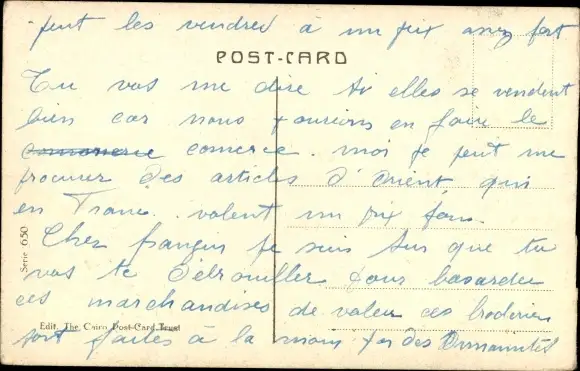 peut les vendres à un prix assez fort
POST-CARD
Tu vas me dire si elles se vendent
bien car nous pourions en faire le
comerce. moi je peut me
procurer des articles d'Orient, qui
en Franc.. valent un prix fou.
Cher français je suis sur que tu
vas te débrouiller pour basarder
ces marchandises de valeur ces broderies
sont faites à la main par des
Serie 650
Edit. The Cairo Post-Card Trust